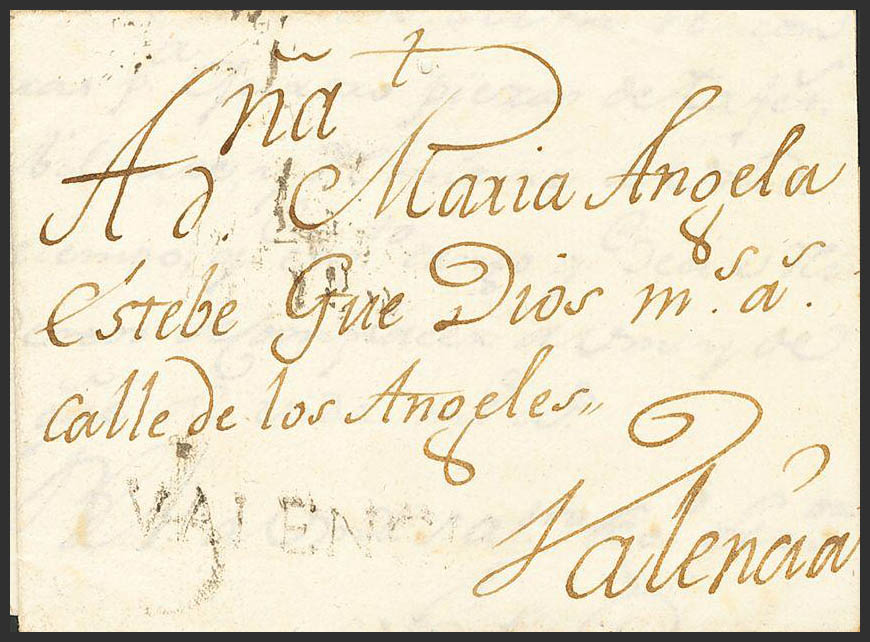 ✝
A dña Maria Angela
Estebe Gue Dios m.s a.s
calle de los Angeles,,
Valencia
VALEN